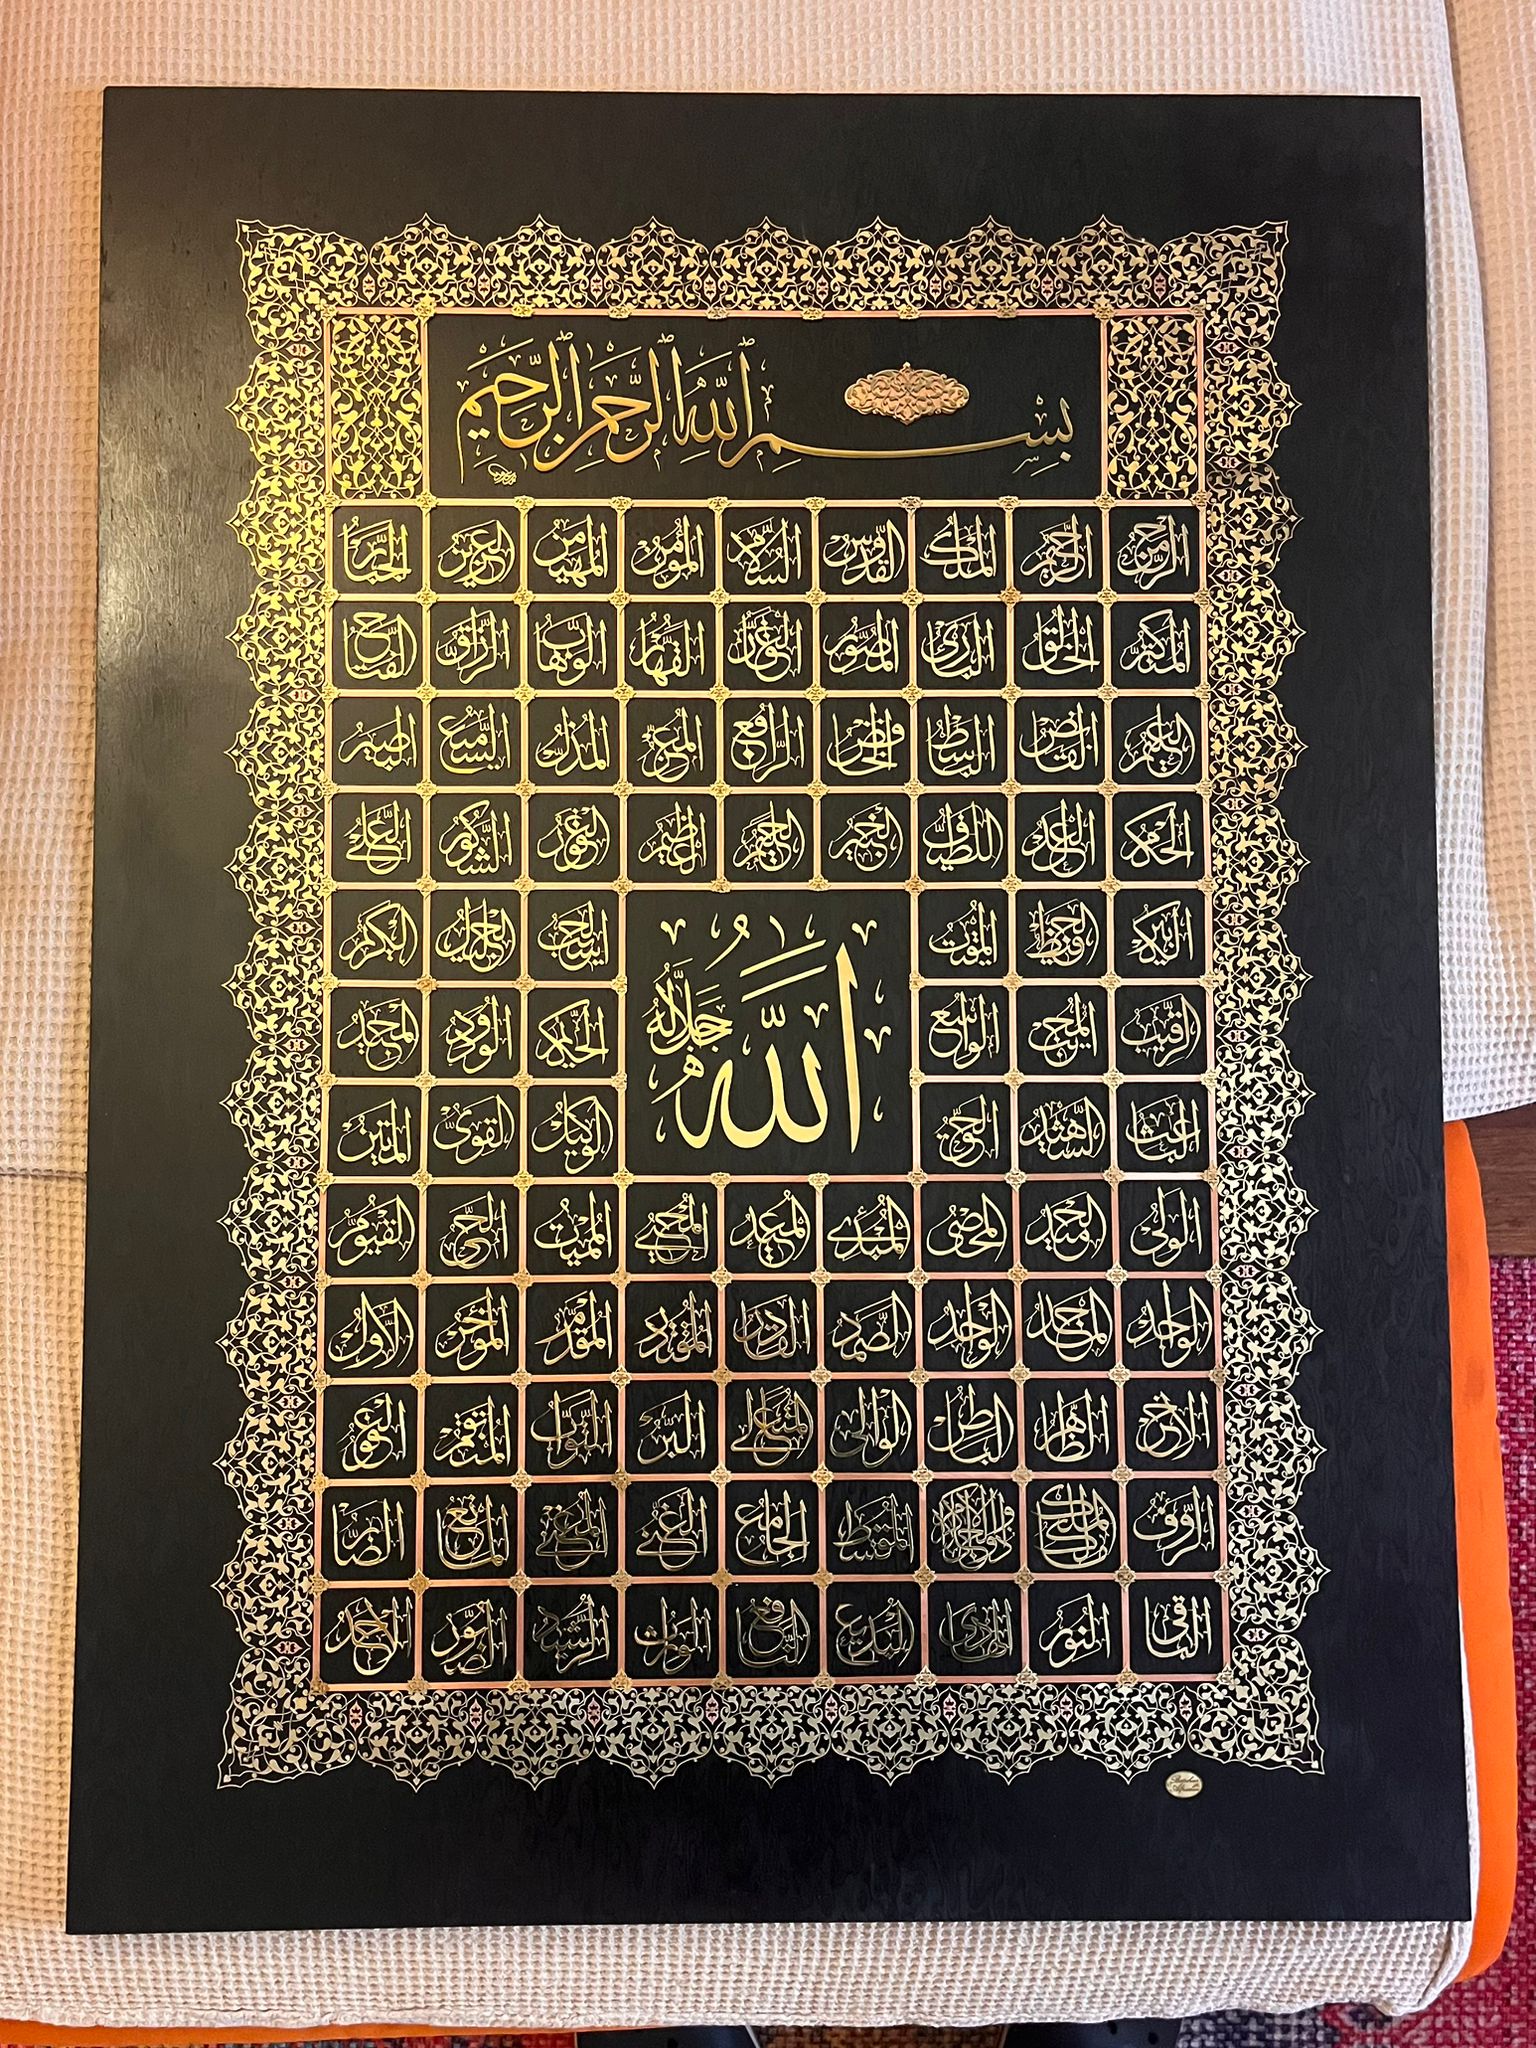 بِسْمِ اللّٰهِ الرَّحْمٰنِ الرَّحِيمِ
الرحمن الرحيم الملك القدوس السلام المؤمن المهيمن العزيز الجبار
المتكبر الخالق البارئ المصور الغفار القهار الوهاب الرزاق الفتاح
العليم القابض الباسط الخافض الرافع المعز المذل السميع البصير
الحكم العدل اللطيف الخبير الحليم العظيم الغفور الشكور العلي
الكبير الحفيظ المقيت الحسيب الجليل الكريم
الرقيب المجيب الواسع الحكيم الودود المجيد
الله جل جلاله
الباعث الشهيد الحق الوكيل القوي المتين
الولي الحميد المحصي المبدئ المعيد المحيي المميت الحي القيوم
الواجد الماجد الواحد الصمد القادر المقتدر المقدم المؤخر الاول
الآخر الظاهر الباطن الوالي المتعالي البر التواب المنتقم العفو
الرؤف مالك الملك ذو الجلال والاكرام المقسط الجامع الغني المغني المانع الضار
الباقي النور الهادي البديع النافع الوارث الرشيد الصبور الاحد